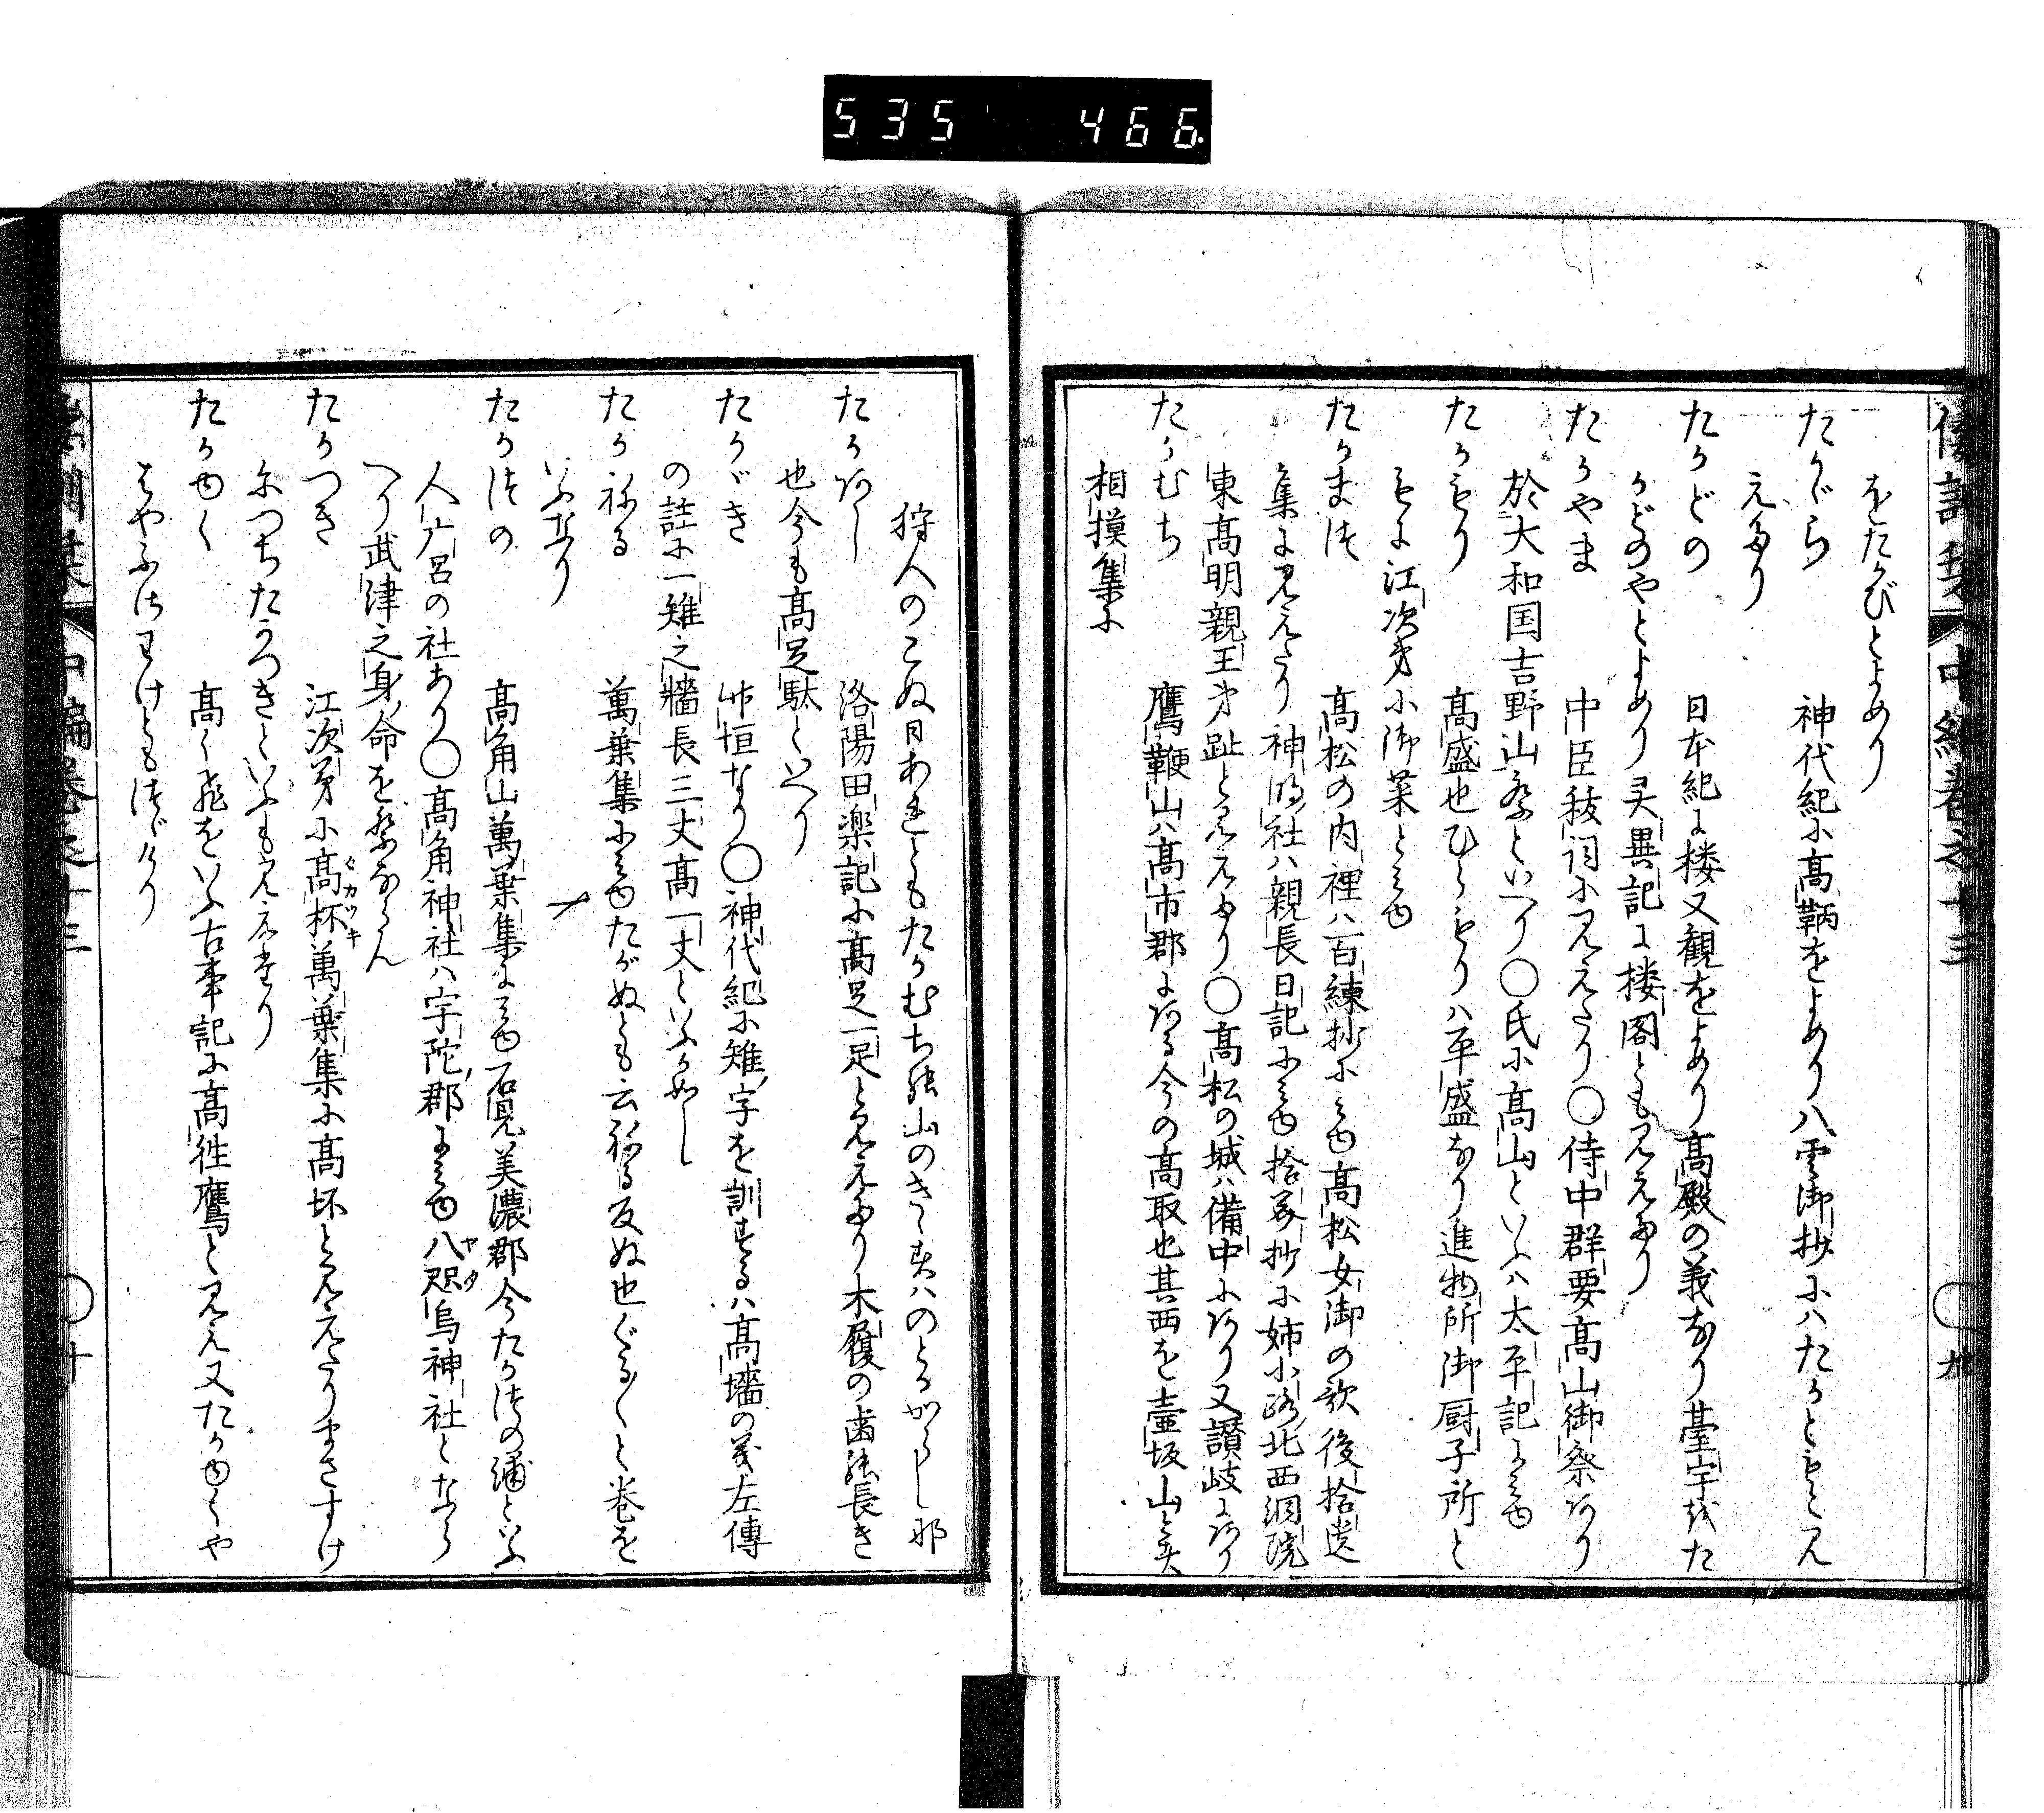 535 466
倭訓栞 中編巻之十三 ○ 九
をたかびとよめり
たかがら 神代紀に高鞆をよめり八雲御抄にハたかともとみ
えたり
たかどの 日本紀に楼又観をよめり高殿の義なり臺字をた
かどのやとよめり灵異記に楼閣ともみえたり
たかやま 中臣秡詞にみえたり○侍中群要高山御祭あり
於大和国吉野山祭といへり○氏に高山といふハ太平記にみゆ
たかもり 高盛也ひらもりハ平盛なり進物所御厨子所と
もに江次第に御菓とみゆ
たかまつ 高松の内裡ハ百練抄にみゆ高松女御の歌後拾遺
集にみえたり神明社ハ親長日記にみゆ拾芥抄に姉小路北西洞院
東高明親王第趾とみえたり○高松の城ハ備中にあり又讃岐にあり
たかむち 鷹鞭山ハ高市郡にある今の高取也其西を壷坂山と云
相摸集に
狩人のこぬ日あれともたかむち能山のきゝすハのとかからし那
たかあし 洛陽田楽記に高足一足とみえたり木履の歯能長き
也今も高足駄といへり
たかがき 竹垣なり○神代紀に雉字を訓するハ高墻の義左傳
の註に一雉之牆長三丈高一丈といふか如し
たかねる 萬葉集にみゆたがぬとも云ねる反ぬ也ぐる〱と巻を
いふなり
たかつの 高角山萬葉集にみゆ石見美濃郡今たかつの浦といふ
人广呂の社あり○高角神社ハ宇陀郡にみゆ八咫烏神社となら
へり武津之身命を祭るならん
たかつき 江次第に高杯萬葉集に高坏とみえたりまさすけ
につちたかつきといふもみえたり
たかゆく 高く飛をいふ古事記に高徃鷹とみえ又たかゆくや
はやふさわけともつゞけり
倭訓栞 中編巻之十三 ○ 十